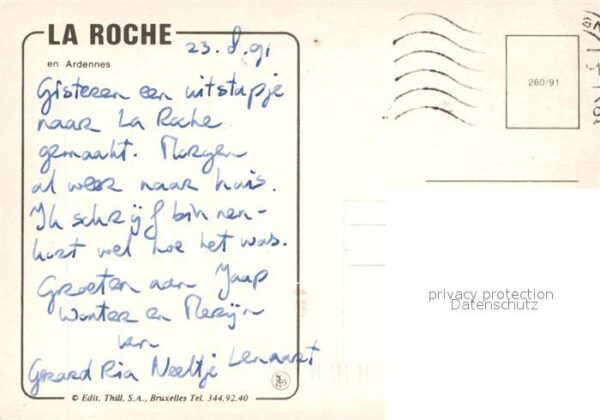 LA ROCHE
23.8.91
en Ardennes
Gisteren een uitstapje
naar La Roche
gemaakt. Morgen
al weer naar huis.
Ik schrijf binnen-
kort wel hoe het was.
Groeten aan Jaap
Wouter en Merijn
van
Gerard Ria Neeltje Lennart
© Edit. Thill, S.A., Bruxelles Tel. 344.92.40
260/91
privacy protection
Datenschutz